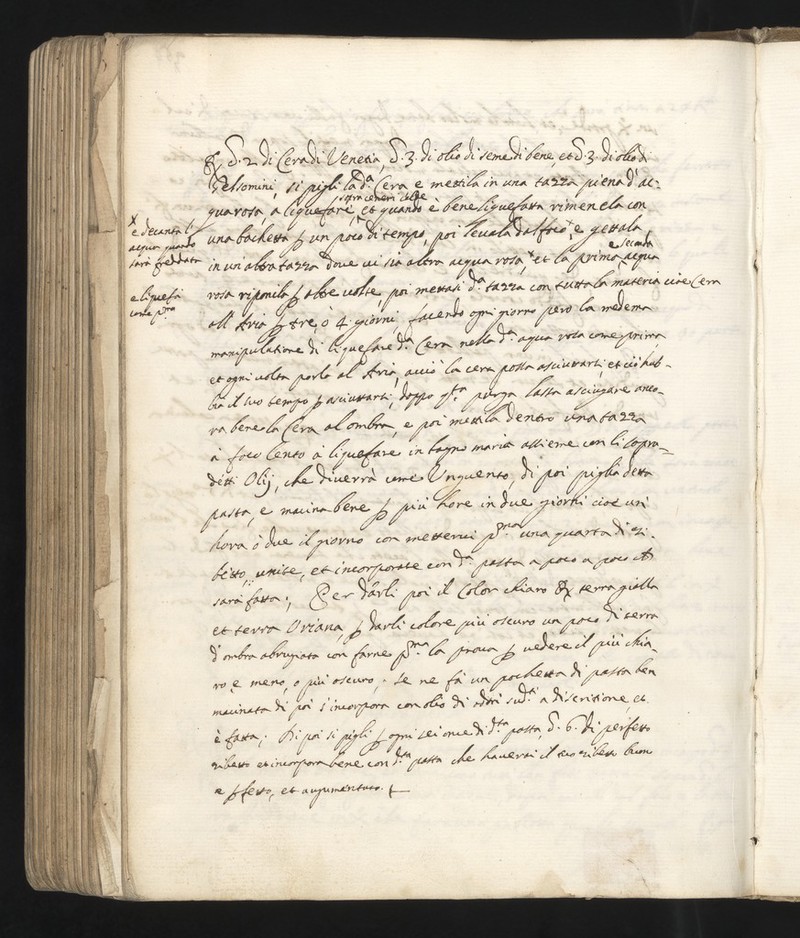 ℞ ʒ. 2. di Cera di Venetia, ʒ. 3. di olio di seme di bene, et ʒ. 3. di olio di
Gelsomini, si pigli la d.ª Cera e mettila in una tazza piena d'ac-
qua rosa, a liquefare, et quando è bene liquefatta rimenela con
sopra ceneri calde
una bachetta ꝑ un poco di tempo, poi levala dal foco, e gettala
in un altra tazza dove vi sia altra acqua rosa x et la prima, acqua
e seconda
rosa riponila ꝑ altre volte, poi mettasi d.ª tazza con tutta la materia cioè Cera
all'Aria ꝑ tre, ò 4. giorni, facendo ogni giorno però la medema
manipulatione di liquefare d.ª Cera nella d.ª aqua rosa come prima
et ogni volta porla al Aria, acciò la cera possa asciuttarsi, et ciò hab-
bia il suo tempo ꝑ asciuttarsi, doppo q.sta purga lassa asciugare anco-
ra bene la Cera al ombra, e poi mettila dentro una tazza
à foco lento à liquefare in bagno maria assieme con li sopra-
detti Olij, che diverrà come Unguento, di poi piglia detta
pasta, e macina bene ꝑ più hore in due giorni cioè un
hora ò due il giorno con mettervi p.ma una quarta di zi-
betto, unite, et incorporate con d.ª pasta a poco a poco et
sarà fatta; Per darli poi il Color chiaro ℞ terra gialla
et terra Oriana, ꝑ darli colore più oscuro un poco di terra
d'ombra abrugiata con farne p.ma la prova ꝑ vedere il più chia-
ro, e meno, o più oscuro; se ne fà un pochetta di pasta ben
macinata di poi s'incorpora con olio di sud.ti a discritione, et
è fatta; Di poi si pigli ꝑ ogni sei oncie di d.ta pasta, ʒ. 6. di perfetto
zibetto et incorpora bene con d.ta pasta che haverai il tuo zibetto buon
e ꝑfetto, et augumentato.
x
e decanta l'
acqua quando
sarà freddata
e liquefà
come p.ma